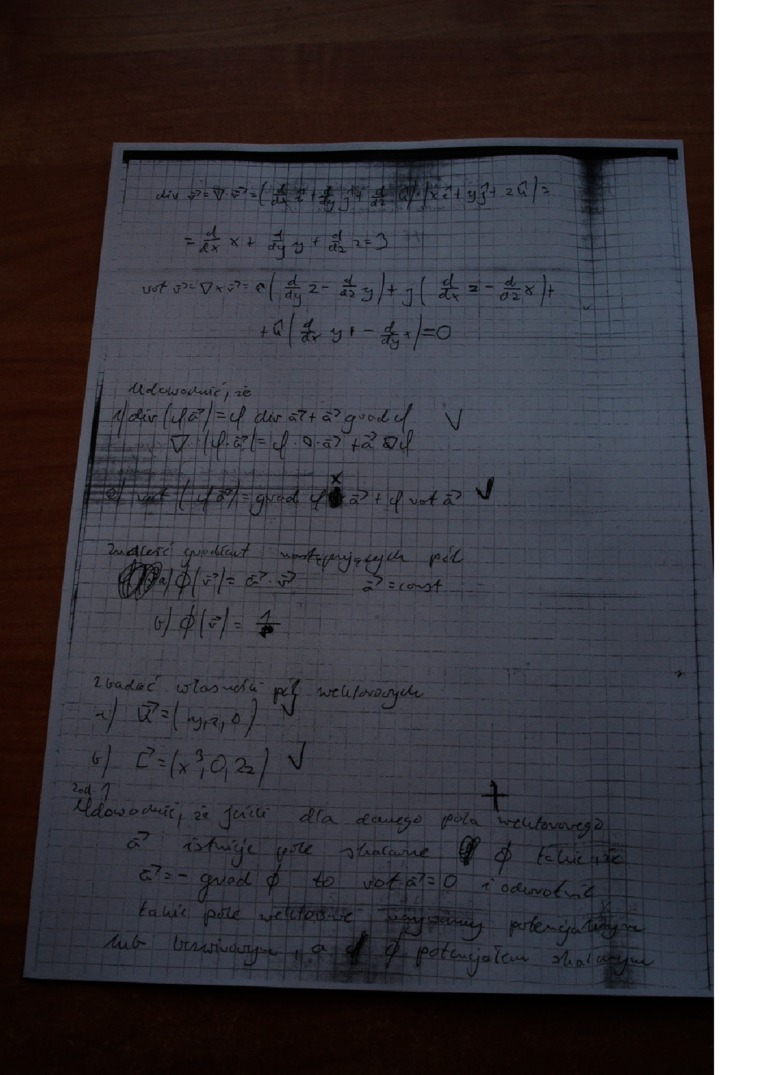 div r⃗ = ∇·r⃗ = (d/dx î + d/dy ĵ + d/dz k̂)·(xî + yĵ + zk̂) =
= d/dx x + d/dy y + d/dz z = 3
rot r⃗ = ∇×r⃗ = î(d/dy z − d/dz y) + j(d/dx z − d/dz x) +
+ k̂(d/dx y − d/dy x) = 0
Udowodnić, że
1) div(φa⃗) = φ div a⃗ + a⃗ grad φ ✓
∇(φ·a⃗) = φ·∇·a⃗ + a⃗ ∇φ
2) rot(φa⃗) = grad φ × a⃗ + φ rot a⃗ ✓
Znaleźć gradient następujących pól
a) ϕ(r⃗) = a⃗·r⃗ a⃗ = const
b) ϕ(r⃗) = 1/r
Zbadać własności pól wektorowych
a) = (y, z, 0) ✓
b) C⃗ = (x³, 0, 2z) ✓
zad. 1
Udowodnić, że jeśli dla danego pola wektorowego
a⃗ istnieje pole skalarne ϕ takie że
a⃗ = − grad ϕ to rot a⃗ = 0 i odwrotnie
takie pole wektorowe nazywamy potencjalnym
lub bezwirowym, a ϕ potencjałem skalarnym